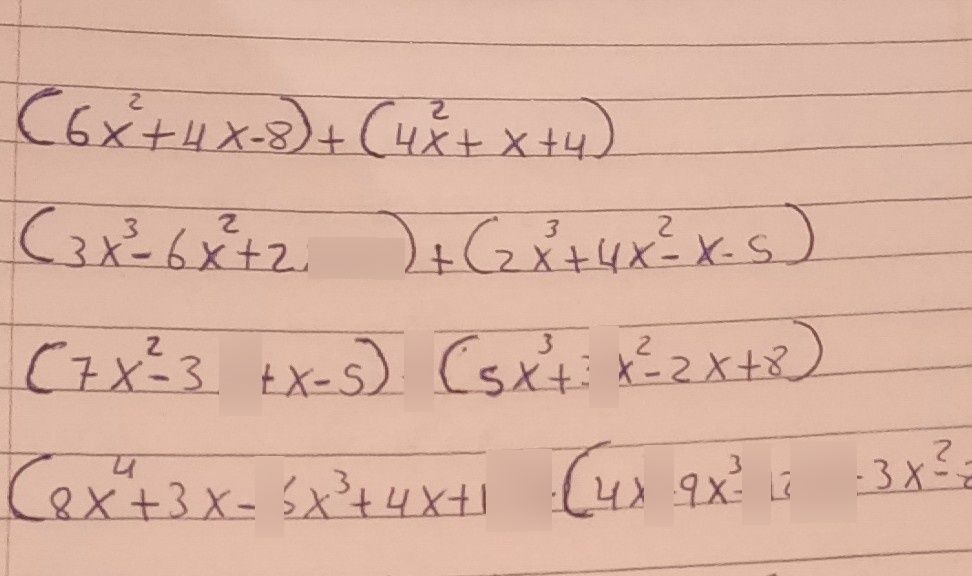 (6x²+4x-8)+(4x²+x+4)
(3x³-6x²+2 )+(2x³+4x²-x-5)
(7x²-3 +x-5) (5x³+ x²-2x+8)
(8x⁴+3x- x³+4x+ (4x 9x³- -3x²-